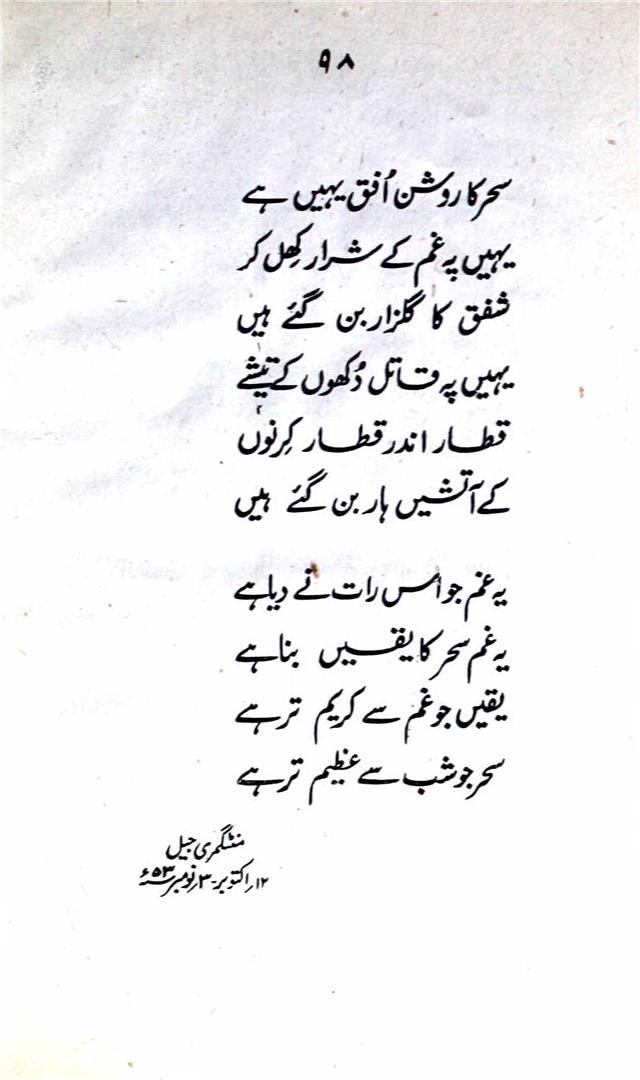 ۹۸
سحر کا روشن اُفق یہیں ہے
یہیں پہ غم کے شرار کِھل کر
شفق کا گلزار بن گئے ہیں
یہیں پہ قاتل دُکھوں کے تیشے
قطار اندر قطار کِرنوں
کے آتشیں ہار بن گئے ہیں
یہ غم جو اس رات نے دیا ہے
یہ غم سحر کا یقیں بنا ہے
یقیں جو غم سے کریم تر ہے
سحر جو شب سے عظیم تر ہے
منٹگمری جیل
۱۲؍ اکتوبر - ۳؍ نومبر ۵۳ء